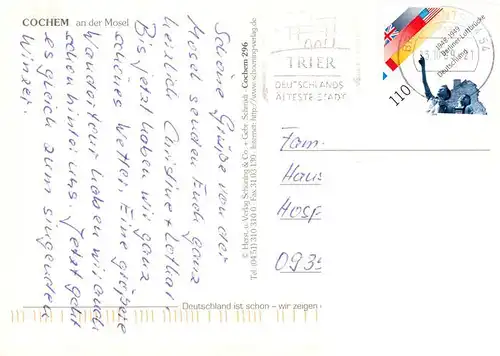 COCHEM an der Mosel
Schöne Grüße von der
Mosel senden Euch ganz
herzlich Christine + Lothar
Bis jetzt haben wir ganz
schönes Wetter. Eine größere
Wandertour haben wir auch
schon hinter uns. Jetzt geht
es gleich zum singenden
Winzer.
© Herst. u. Verlag Schöning & Co. + Gebr. Schmidt
Cochem 296
Tel. (0451) 310 310 Fax 31 03 139 - Internet: http://www.schoening-verlag.de
TRIER
DEUTSCHLANDS
ÄLTESTE STADT
1948-1949
Berliner Luftbrücke
Deutschland
110
Fam.
Haus
Hosp
0935
Deutschland ist schön – wir zeigen